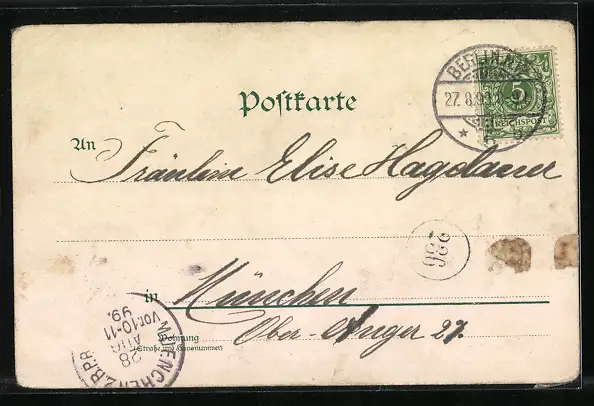 Postkarte
BERLIN
27.8.99
5
REICHSPOST
An Fräulein Elise Hagdauer
286
in München
Wohnung
(Straße und Hausnummer)
Ober-Anger 27.
MUENCHEN 2.B.P.B.
28
AUG
Vor.10-11
99.